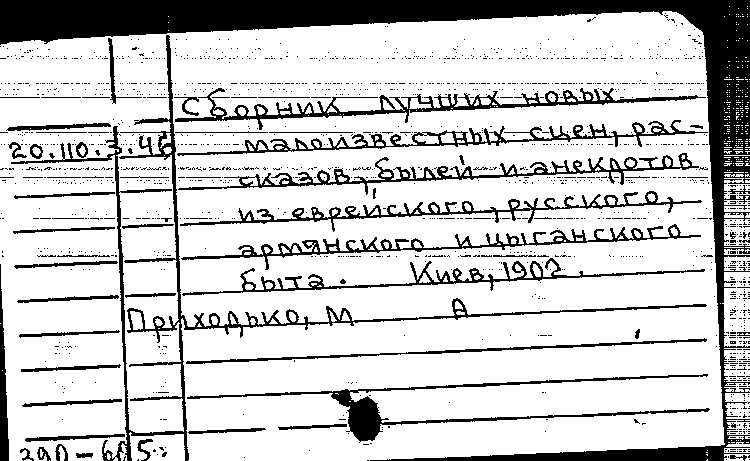 Сборник лучших новых
20.110.3.46 малоизвестных сцен, рас-
сказов, былей и анекдотов
из еврейского, русского,
армянского и цыганского
быта. Киев, 1902.
Приходько, М А